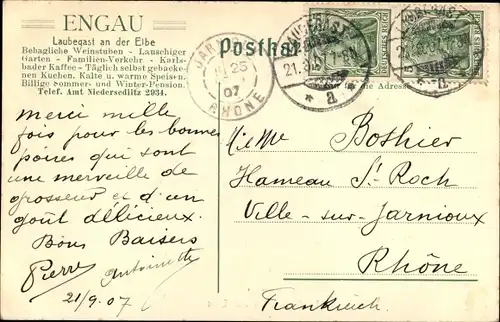 ENGAU
Laubegast an der Elbe
Behagliche Weinstuben - Lauschiger
Garten - Familien-Verkehr - Karls-
bader Kaffee - Täglich selbst gebacke-
nen Kuchen. Kalte u. warme Speisen.
Billige Sommer- und Winter-Pension.
Telef. Amt Niedersedlitz 2934.
Postkarte
DEUTSCHES REICH
LAUBEGAST
21.9.07 7-8N
a
25
07
RHÔNE
für die Adresse
Merci mille
fois pour les bonnes
poires qui sont
une merveille de
grosseur et d'un
goût délicieux.
Bons Baisers
Pierre
Antoinette
21/9.07
Mme Bothier
Hameau St Roch
Ville-sur-Jarnioux
Rhône
Frankreich